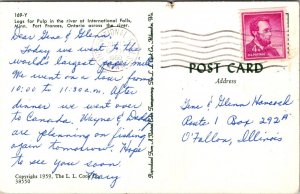 169-Y
Logs for Pulp in the river at International Falls,
Minn. Fort Frances, Ontario across the river.
Dear Gene & Glenna,
Today we went to the
world's largest paper mill
We went on a tour from
10:00 to 11:30 a.m. After
dinner we went over
to Canada. Wayne & Dad
are planning on fishing
again tomorrow. Hope
to see you soon.
Mary
Copyright 1959, The L. L. Cook
38550
4¢
POST CARD
Address
Gene & Glenna Hancock
Route 1 Box 292A
O'Fallon, Illinois